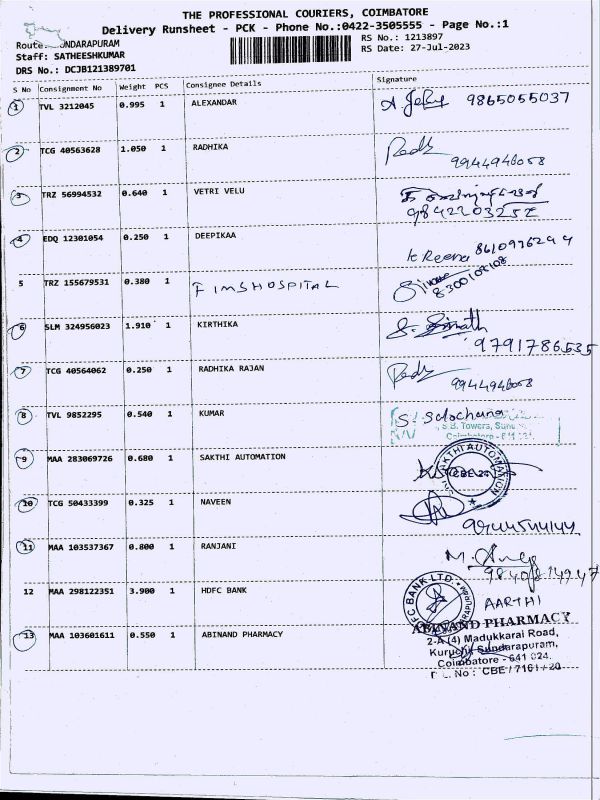 THE PROFESSIONAL COURIERS, COIMBATORE
Delivery Runsheet - PCK - Phone No.:0422-3505555 - Page No.:1
Route: UNDARAPURAM
RS No.: 1213897
Staff: SATHEESHKUMAR
RS Date: 27-Jul-2023
DRS No.: DCJB121389701
S No Consignment No Weight PCS Consignee Details Signature
1 TVL 3212045 0.995 1 ALEXANDAR 9865055037
2 TCG 40563628 1.050 1 RADHIKA 9944946058
3 TRZ 56994532 0.640 1 VETRI VELU
4 EDQ 12301054 0.250 1 DEEPIKAA K Reena
5 TRZ 155679531 0.380 1 FIMSHOSPITAL 8300109108
6 SLM 324956023 1.910 1 KIRTHIKA 9791786535
7 TCG 40564062 0.250 1 RADHIKA RAJAN 9944946058
8 TVL 9852295 0.540 1 KUMAR S. Sulochana
S.B. Towers,
Coimbatore - 641
9 MAA 283069726 0.680 1 SAKTHI AUTOMATION SAKTHI AUTOMATION
10 TCG 50433399 0.325 1 NAVEEN
11 MAA 103537367 0.800 1 RANJANI
12 MAA 298122351 3.900 1 HDFC BANK BANK LTD. AARTHI
13 MAA 103601611 0.550 1 ABINAND PHARMACY ABINAND PHARMACY
2-A (4) Madukkarai Road,
Kuruchi, Sundarapuram,
Coimbatore - 641 024.
No : CBE / 7161 / 20